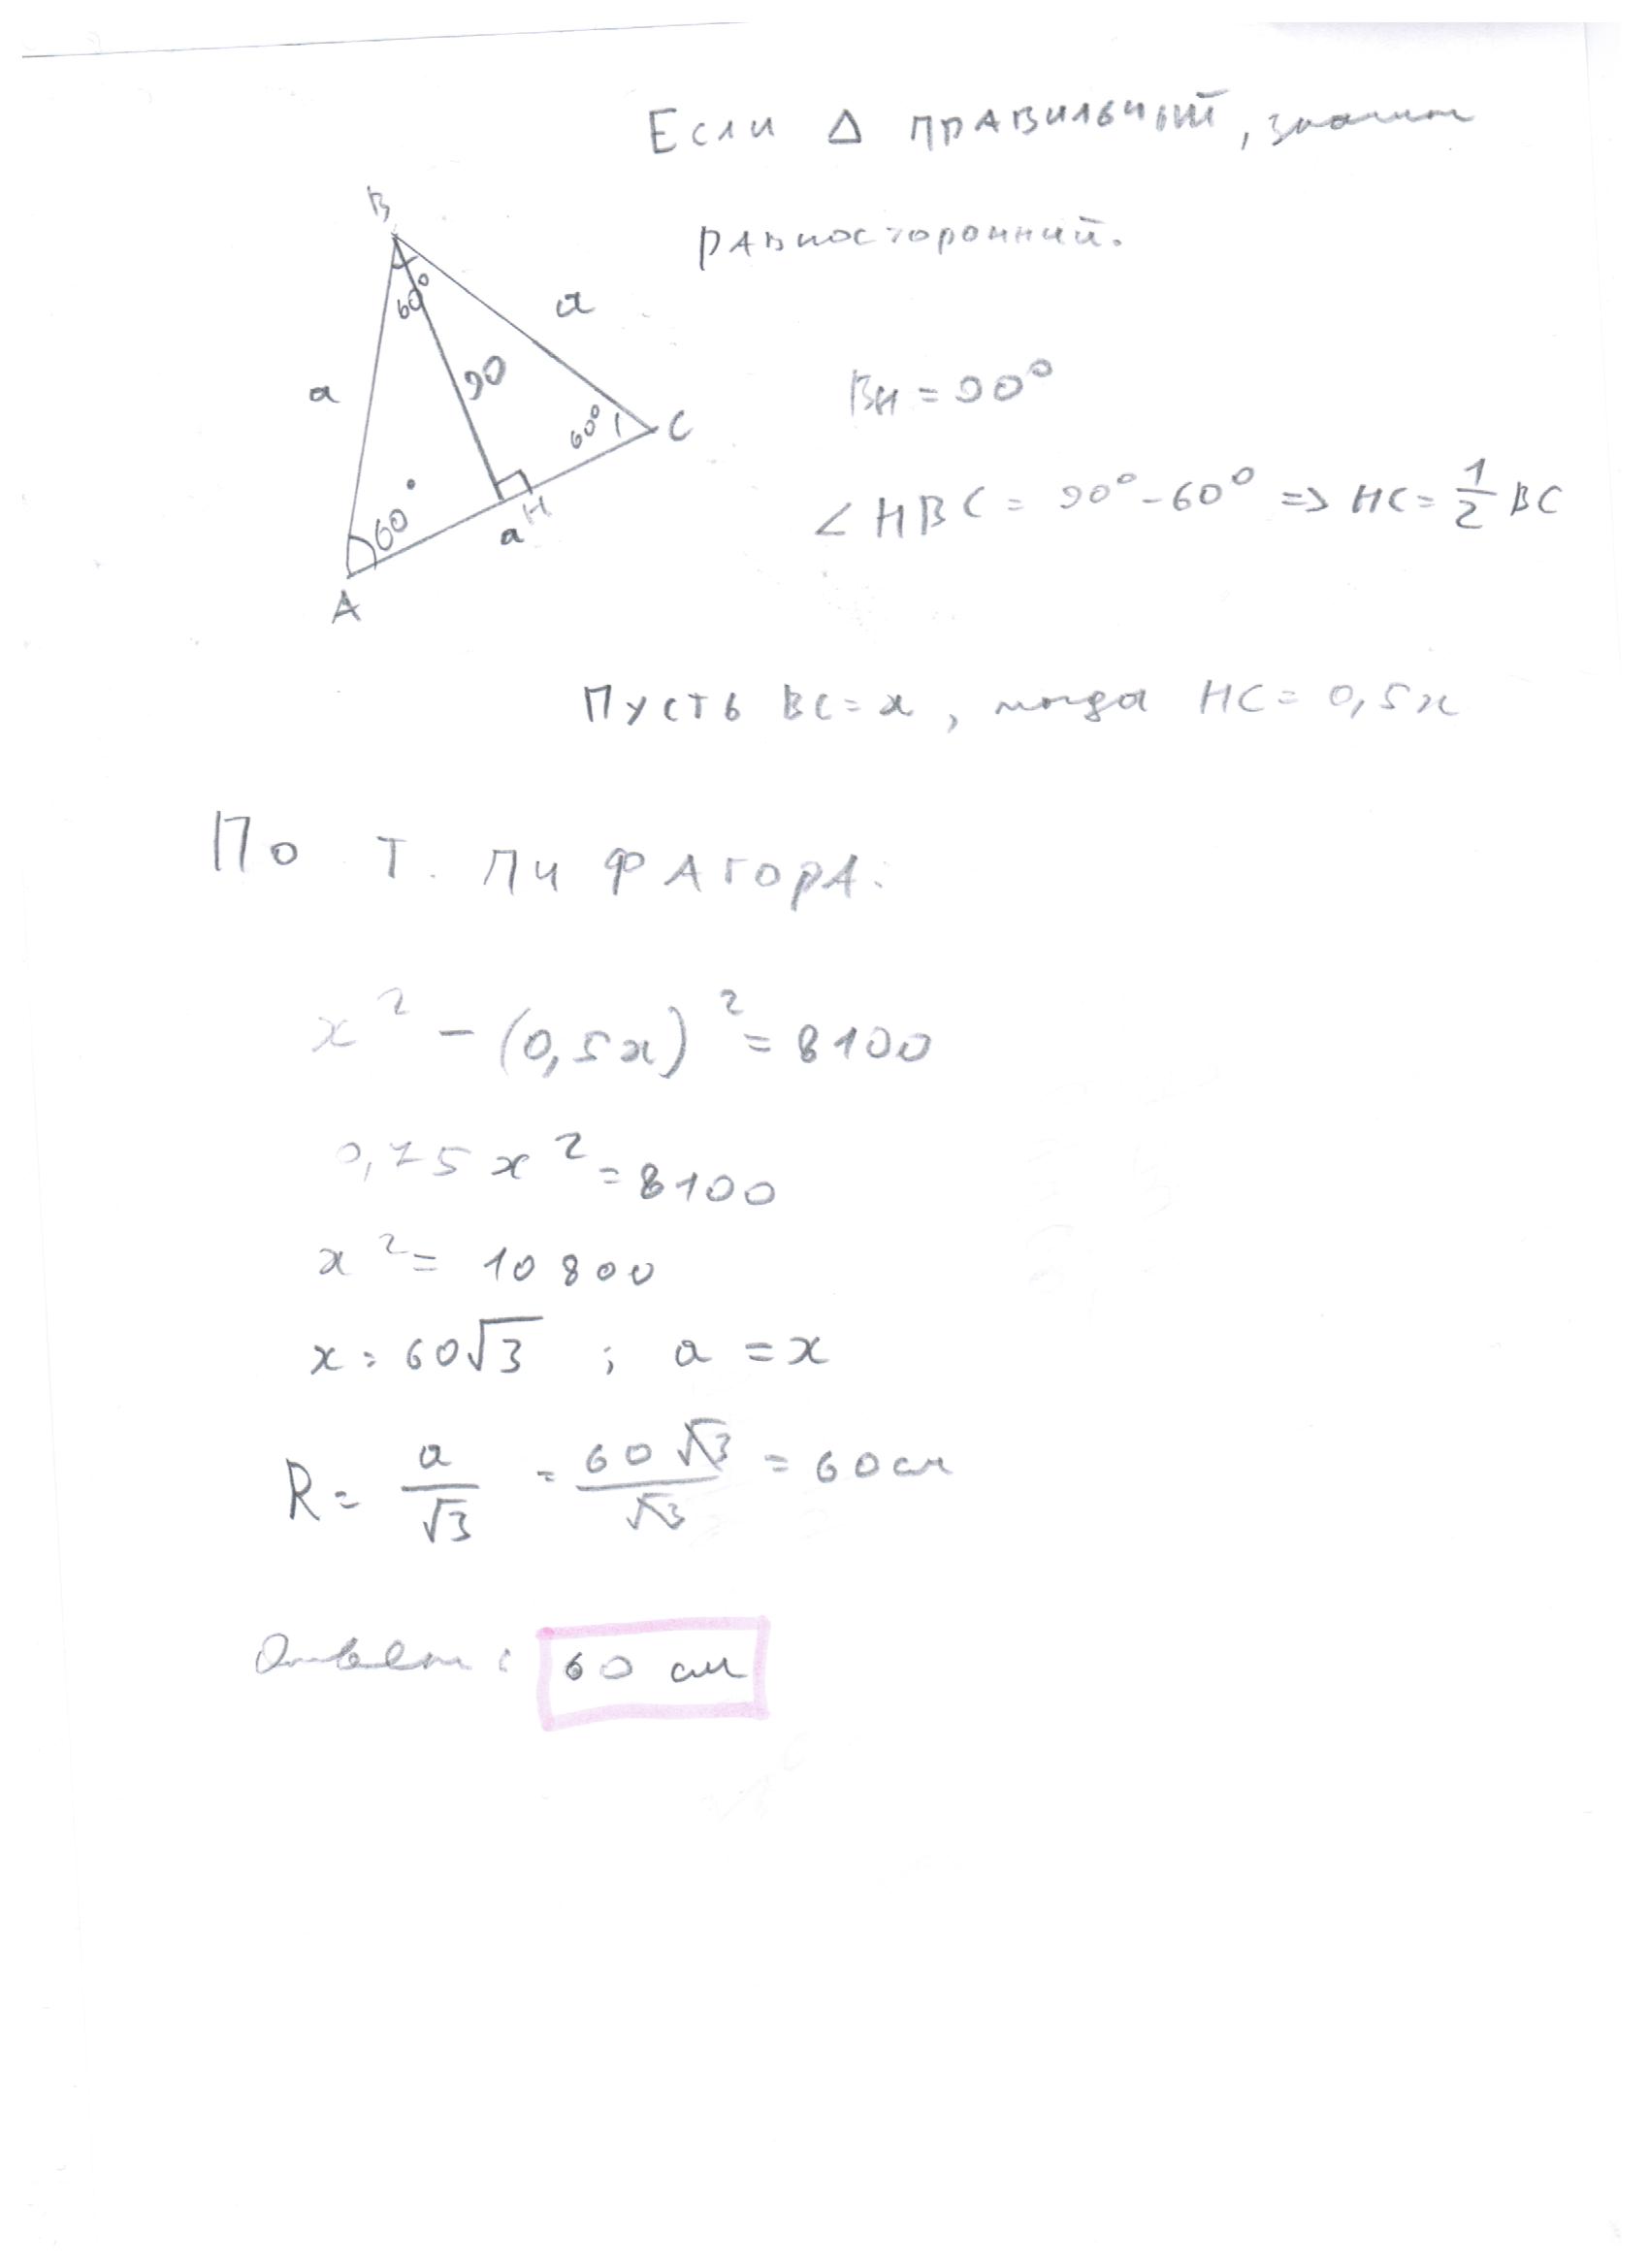 Если Δ правильный, значит
равносторонний.
B
60°
a
a
90
60°
C
H
a
60°
A
BH = 90°
∠HBC = 90° - 60° => HC = 1/2 BC
Пусть BC = x, тогда HC = 0,5x
По т. Пифагора:
x² - (0,5x)² = 8100
0,75x² = 8100
x² = 10800
x = 60√3 ; a = x
R = a/√3 = 60√3/√3 = 60 см
Ответ: 60 см